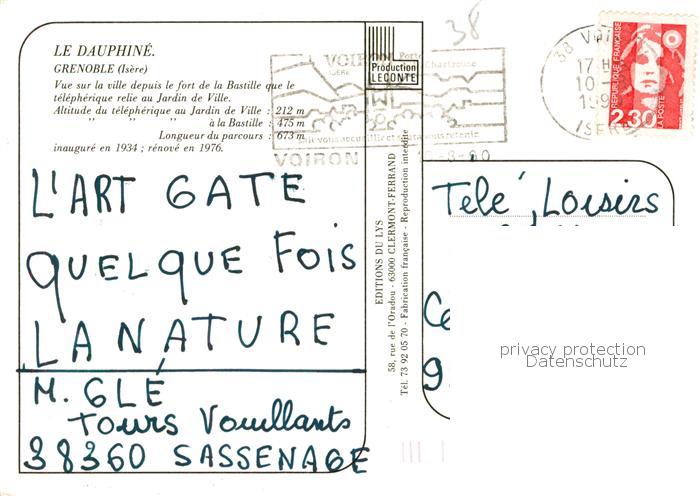 LE DAUPHINÉ.
GRENOBLE (Isère)
Vue sur la ville depuis le fort de la Bastille que le
téléphérique relie au Jardin de Ville.
Altitude du téléphérique au Jardin de Ville : 212 m
" " " à la Bastille : 475 m
Longueur du parcours : 673 m
inauguré en 1934 ; rénové en 1976.
L'ART GATE
QUELQUE FOIS
LA NATURE
M. GLÉ
Tours Vouillants
38360 SASSENAGE
Production
LECONTE
EDITIONS DU LYS
58, rue de l'Oradou - 63000 CLERMONT-FERRAND
Tél. 73 92 05 70 - Fabrication française - Reproduction interdite
38
VOIRON Porte
ISÈRE Chartreuse
VOIRON
38 VOI
17 H
10-
19
ISÈRE
RÉPUBLIQUE FRANÇAISE
2,30
LA POSTE
Telé, Loisirs
Ce
9
privacy protection
Datenschutz